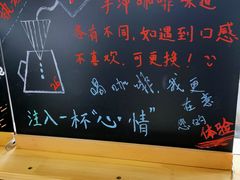 手沖咖啡 味道
各有不同,如遇到口感
不喜欢,可更换!
喝咖啡,我更
在意
您的
体验
注入一杯“心情”